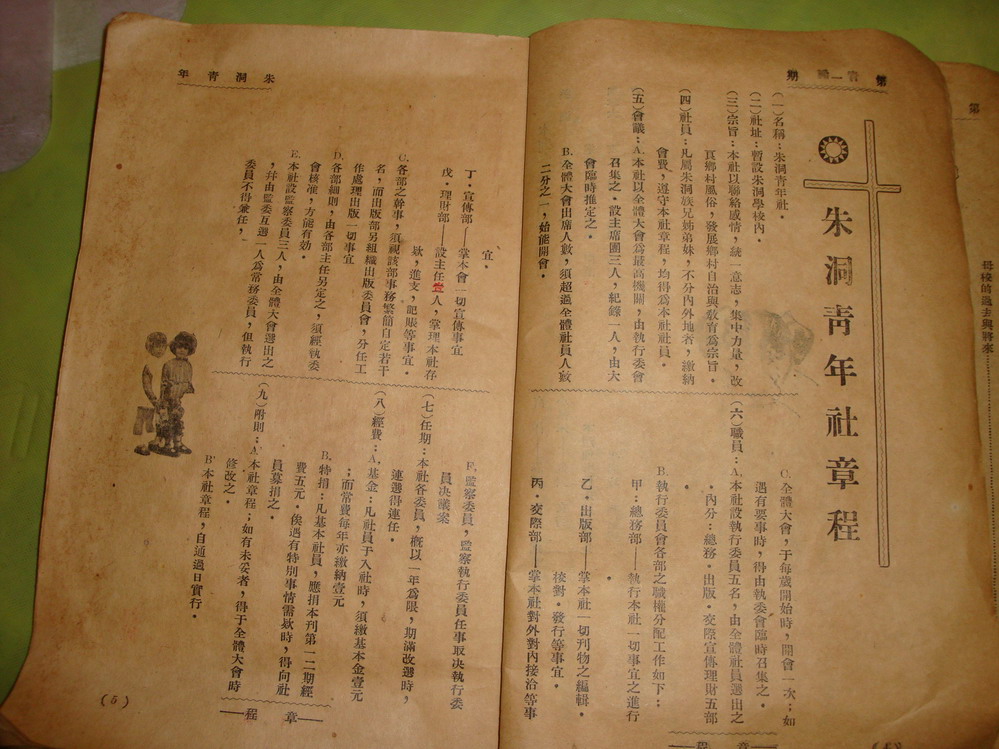 朱洞青年社章程
(一)名稱:朱洞青年社.
(二)社址:暫設朱洞學校內.
(三)宗旨:本社以聯絡感情,統一意志,集中力量,改
良鄉村風俗,發展鄉村自治與敎育爲宗旨.
(四)社員:凡屬朱洞族兄姊弟妹,不分內外地者,繳納
會費,遵守本社章程,均得爲本社社員.
(五)會議:A.本社以全體大會爲最高機關,由執行委會
召集之.設主席團三人,紀錄一人,由大
會臨時推定之.
B.全體大會出席人數,須超過全體社員人數
二分之一,始能開會.
C.全體大會,于每歲開始時,開會一次;如
遇有要事時,得由執委會臨時召集之.
(六)職員:A.本社設執行委員五名,由全體社員選出之
.內分:總務.出版.交際宣傳理財五部
.
B.執行委員會各部之職權分配工作如下:
甲:總務部——執行本社一切事宜之進行
.
乙.出版部——掌本社一切刊物之編輯.
校對.發行等事宜.
丙.交際部——掌本社對外對內接洽等事
第 期
朱洞靑年
宜.
丁.宣傳部——掌本會一切宣傳事宜
戊.理財部——設主任壹人,掌理本社存
欵,進支,記賬等事宜.
C.各部之幹事,須視該部事務繁簡自定若干
名,而出版部另組織出版委員會,分任工
作處理出版一切事宜
D.各部細則,由各部主任另定之,須經執委
會核准,方能有効.
E.本社設監察委員三人,由全體大會選出之
,幷由監委互選一人爲常務委員,但執行
委員不得兼任,
F.監察委員,監察執行委員任事取决執行委
員决議案
(七)任期:本社各委員,概以一年爲限,期滿改選時,
連選得連任.
(八)經費:A.基金:凡社員于入社時,須繳基本金壹元
;而常費每年亦繳納壹元
B.特捐:凡基本社員,應捐本刊第一二期經
費五元.俟遇有特別事情需欵時,得向社
員募捐之.
(九)附則:A.本社章程;如有未妥者,得于全體大會時
修改之.
B.本社章程,自通過日實行.
——章程——
(5)
第
母校的過去與將來